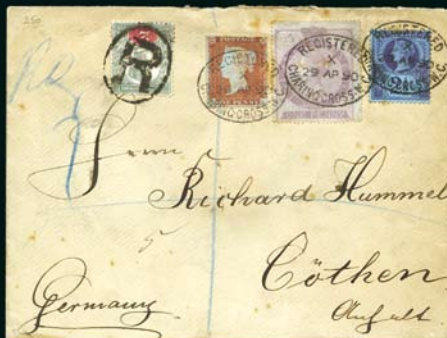 250
R
REGISTERED
CHARING CROSS W.C.
REGISTERED
X
29 AP 90
CHARING CROSS W.C.
REGISTERED
90
CHARING CROSS W.C.
Herrn
Richard Hummel
Cöthen
Anhalt
Germany